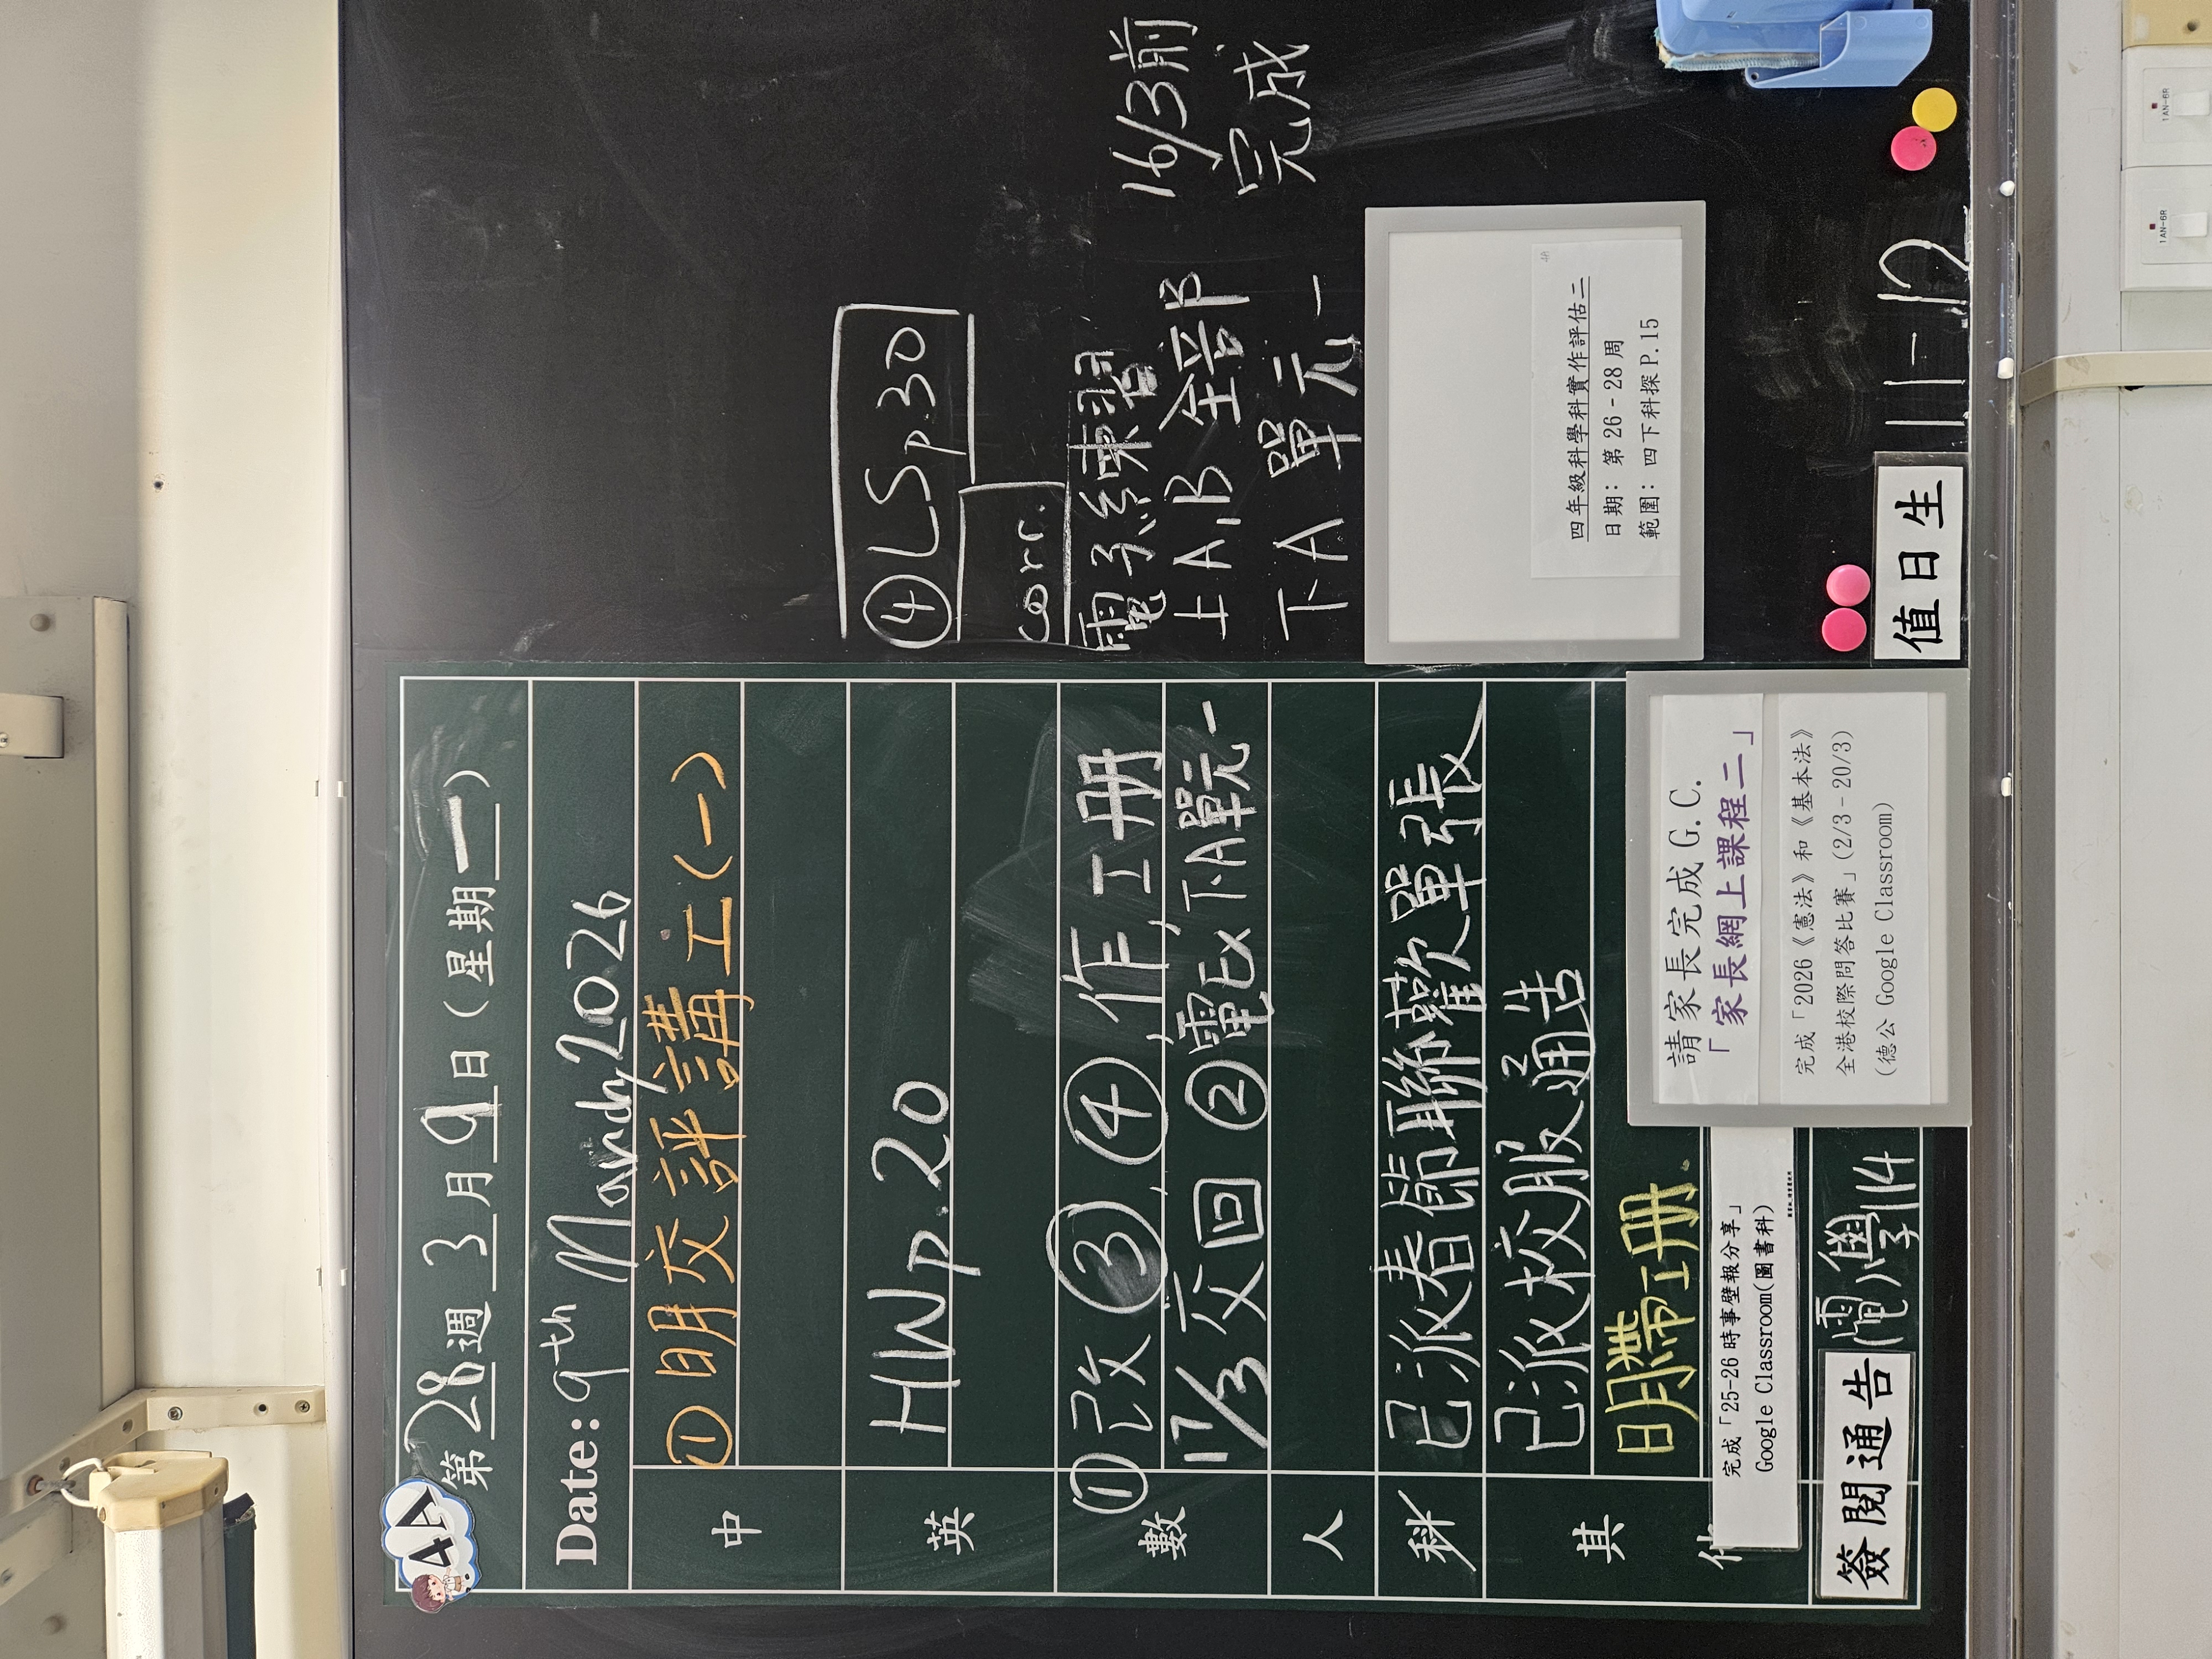 4A
第28週3月9日(星期一)
Date: 9th March 2026
中
①明交評講工(一)
英
HW p.20
數
①改③,④,作,工冊
17/3交回②電Ex下A單元一
人
科
已派春節聯歡單張
其他
已派校服通告
明帶工冊
完成「25-26 時事壁報分享」
Google Classroom(圖書科)
簽閱通告
電學114
請家長完成 G.C.
「家長網上課程二」
完成「2026《憲法》和《基本法》
全港校際問答比賽」(2/3-20/3)
(德公 Google Classroom)
④LS p.30
corr.
電子練習
上A,B 全部
下A 單元一
16/3前
完成
四年級科學科實作評估二
日期: 第 26-28 周
範圍: 四下科探 P.15
值日生
11-12
1AN-6R
1AN-6R